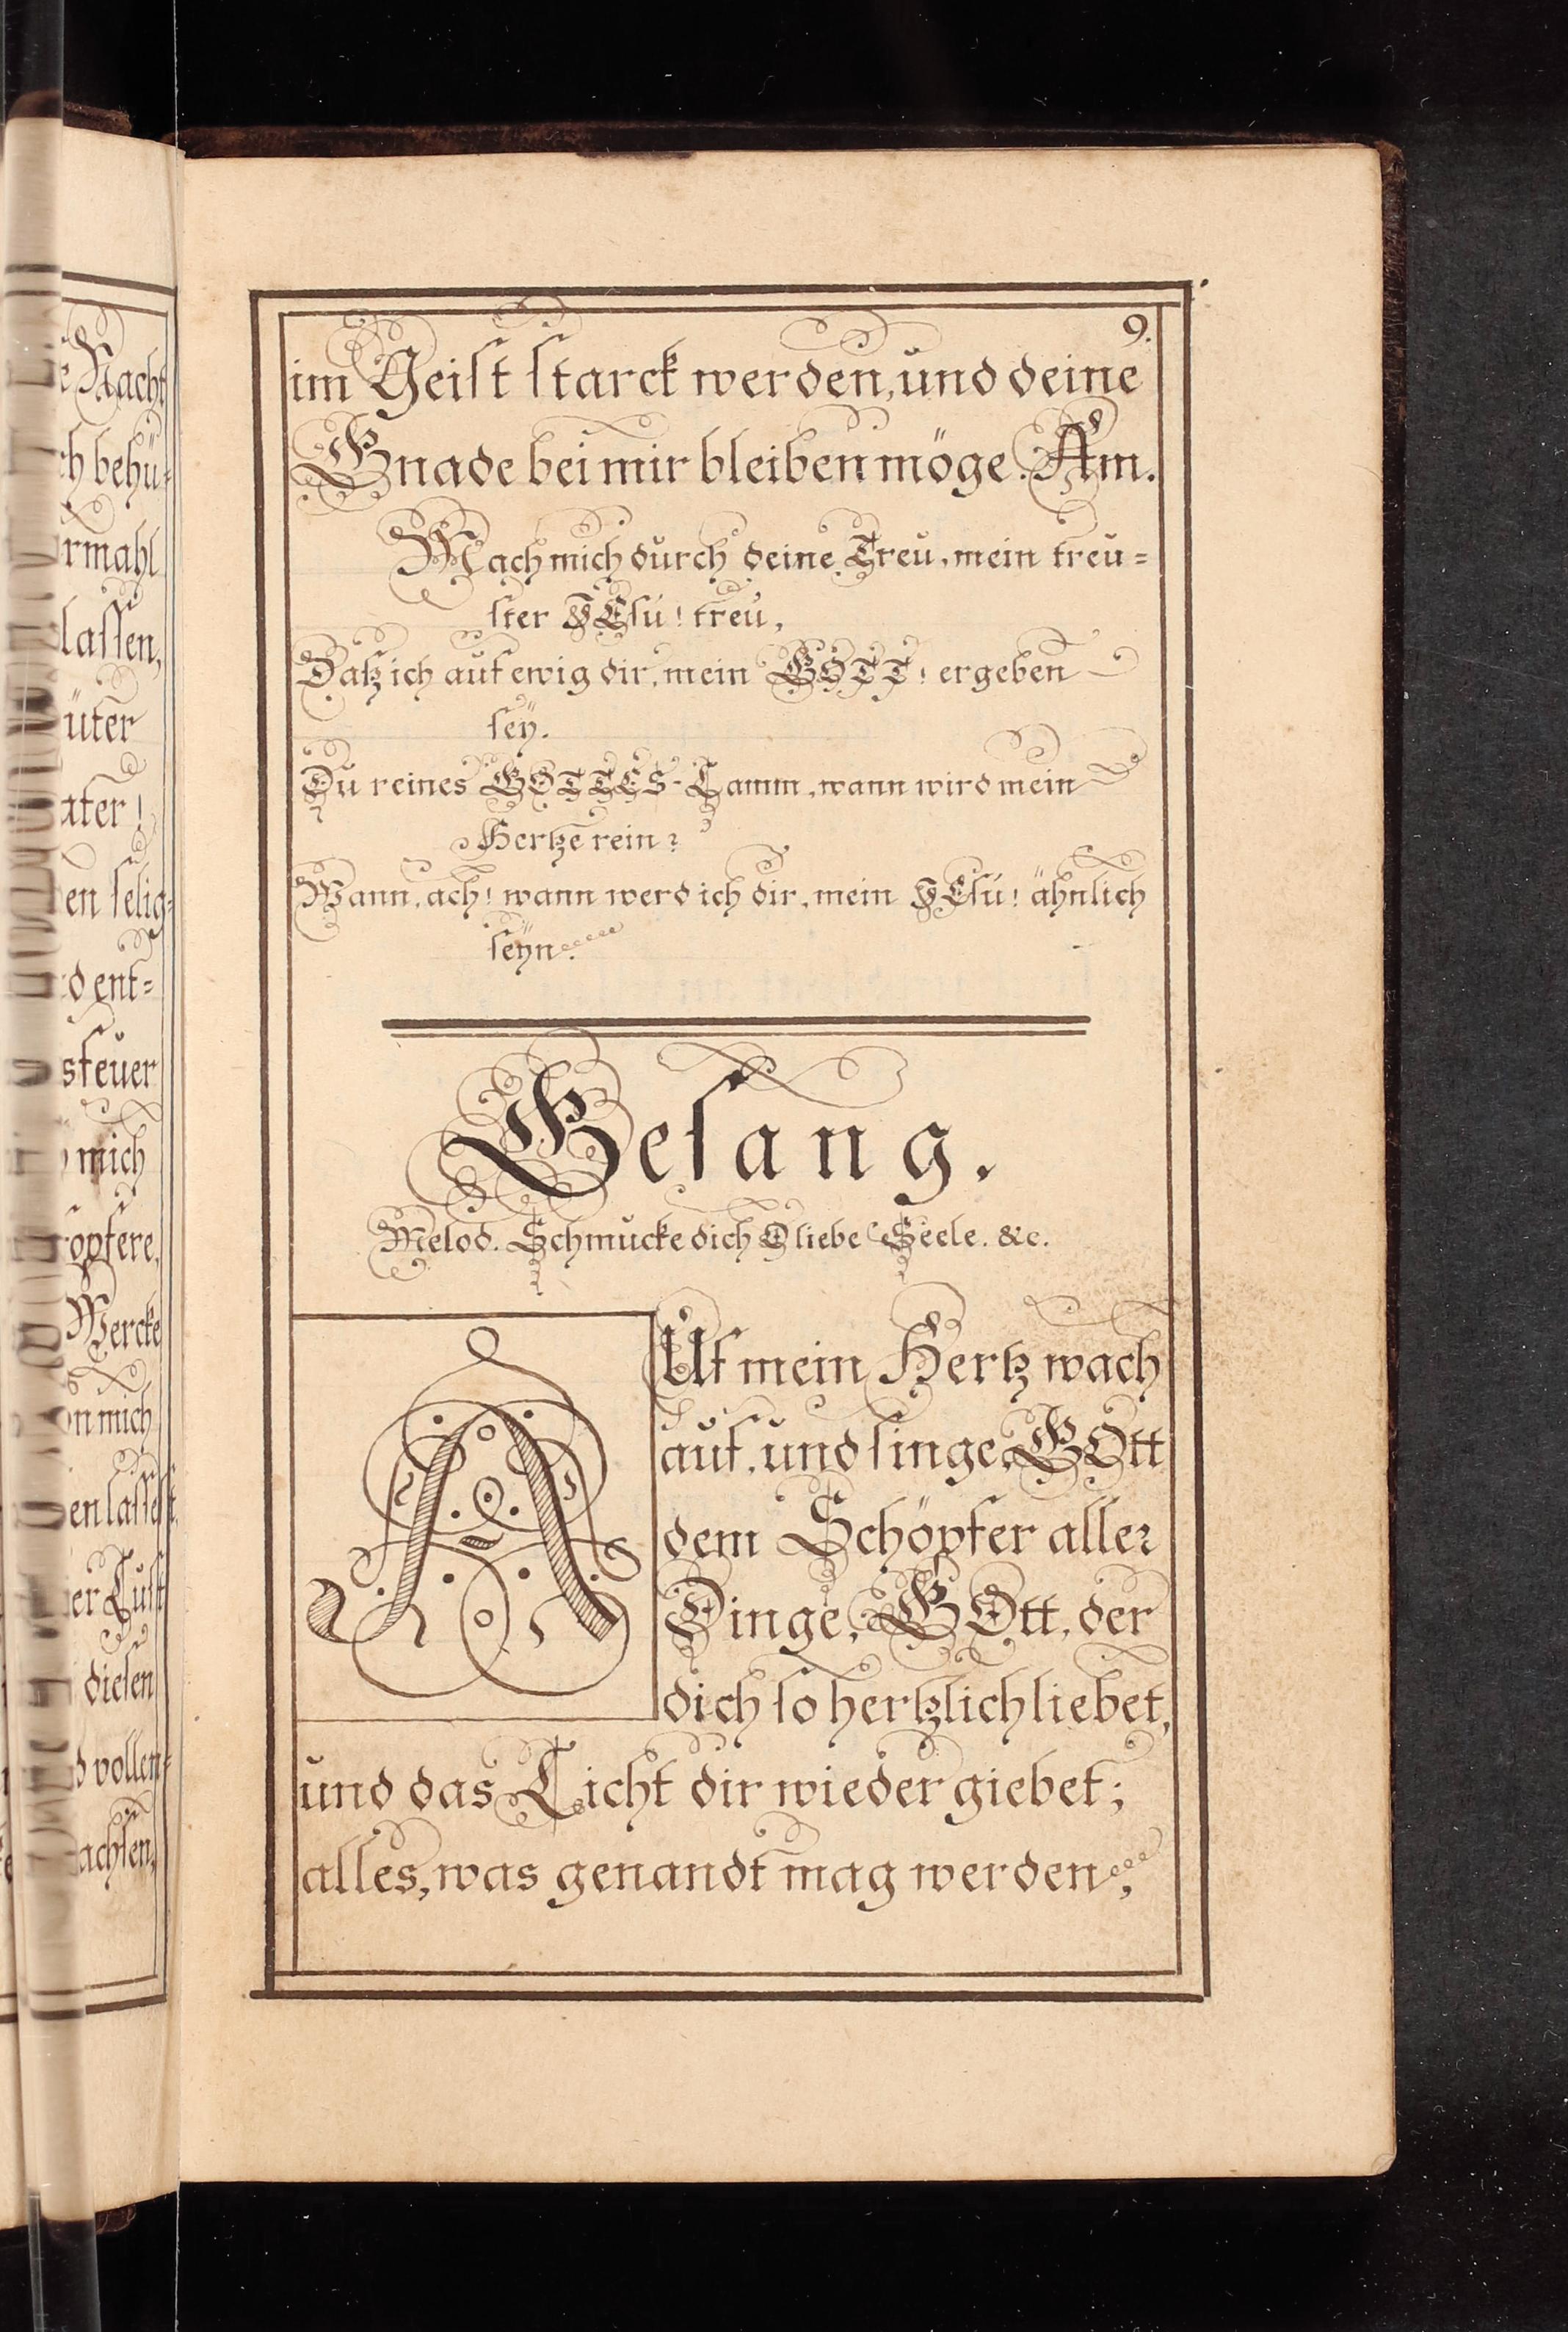 e Nacht
ch behü-
rmahl
lassen,
üter
ater!
en selig-
d ent=
steuer
mich
opfere,
Wercke
on mich
en lassest
er Lust
diesen
d vollen=
achsen,
9.
im Geist starck werden, und deine
Gnade bei mir bleiben möge. Am.
Mach mich durch deine Treu, mein treu=
ster JEsu! treu,
Daß ich auf ewig dir, mein GOTT! ergeben
seÿ.
Du reines GOTTES-Lamm, wann wird mein
Hertze rein?
Wann, ach! wann werd ich dir, mein JEsu! ähnlich
seÿn.
Gesang.
Melod. Schmucke dich O liebe Seele. &c.
AUf mein Hertz wach
auf, und singe, GOtt
dem Schöpfer aller
Dinge, GOtt, der
dich so hertzlich liebet,
und das Licht dir wieder giebet;
alles, was genandt mag werden,